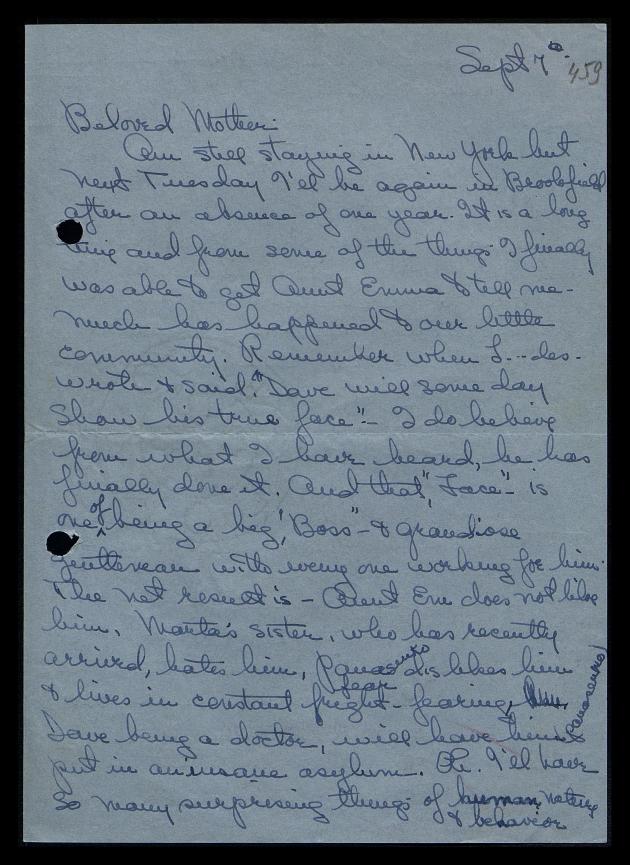 Sept 7th.
459
Beloved Mother:
Am still staying in New York but
next Tuesday I'll be again in Brookfield
after an absence of one year. It is a long
time and from some of the things I finally
was able to get Aunt Emma to tell me -
much has happened to our little
community. Remember when L...des -
wrote & said: "Dave will some day
show his true face" - I do believe
from what I have heard, he has
finally done it. And that "Face" - is
one of being a big "Boss" - & grandiose
gentleman with every one working for him.
The net result is - Aunt Em does not like
him, Marta's sister, who has recently
arrived, hates him, Panasenko dislikes him
& lives in constant fear fright - fearing,
Dave being a doctor, will have him (Panasenko)
put in an insane asylum. Oh. I'll have
so many surprising things of human nature
& behavior